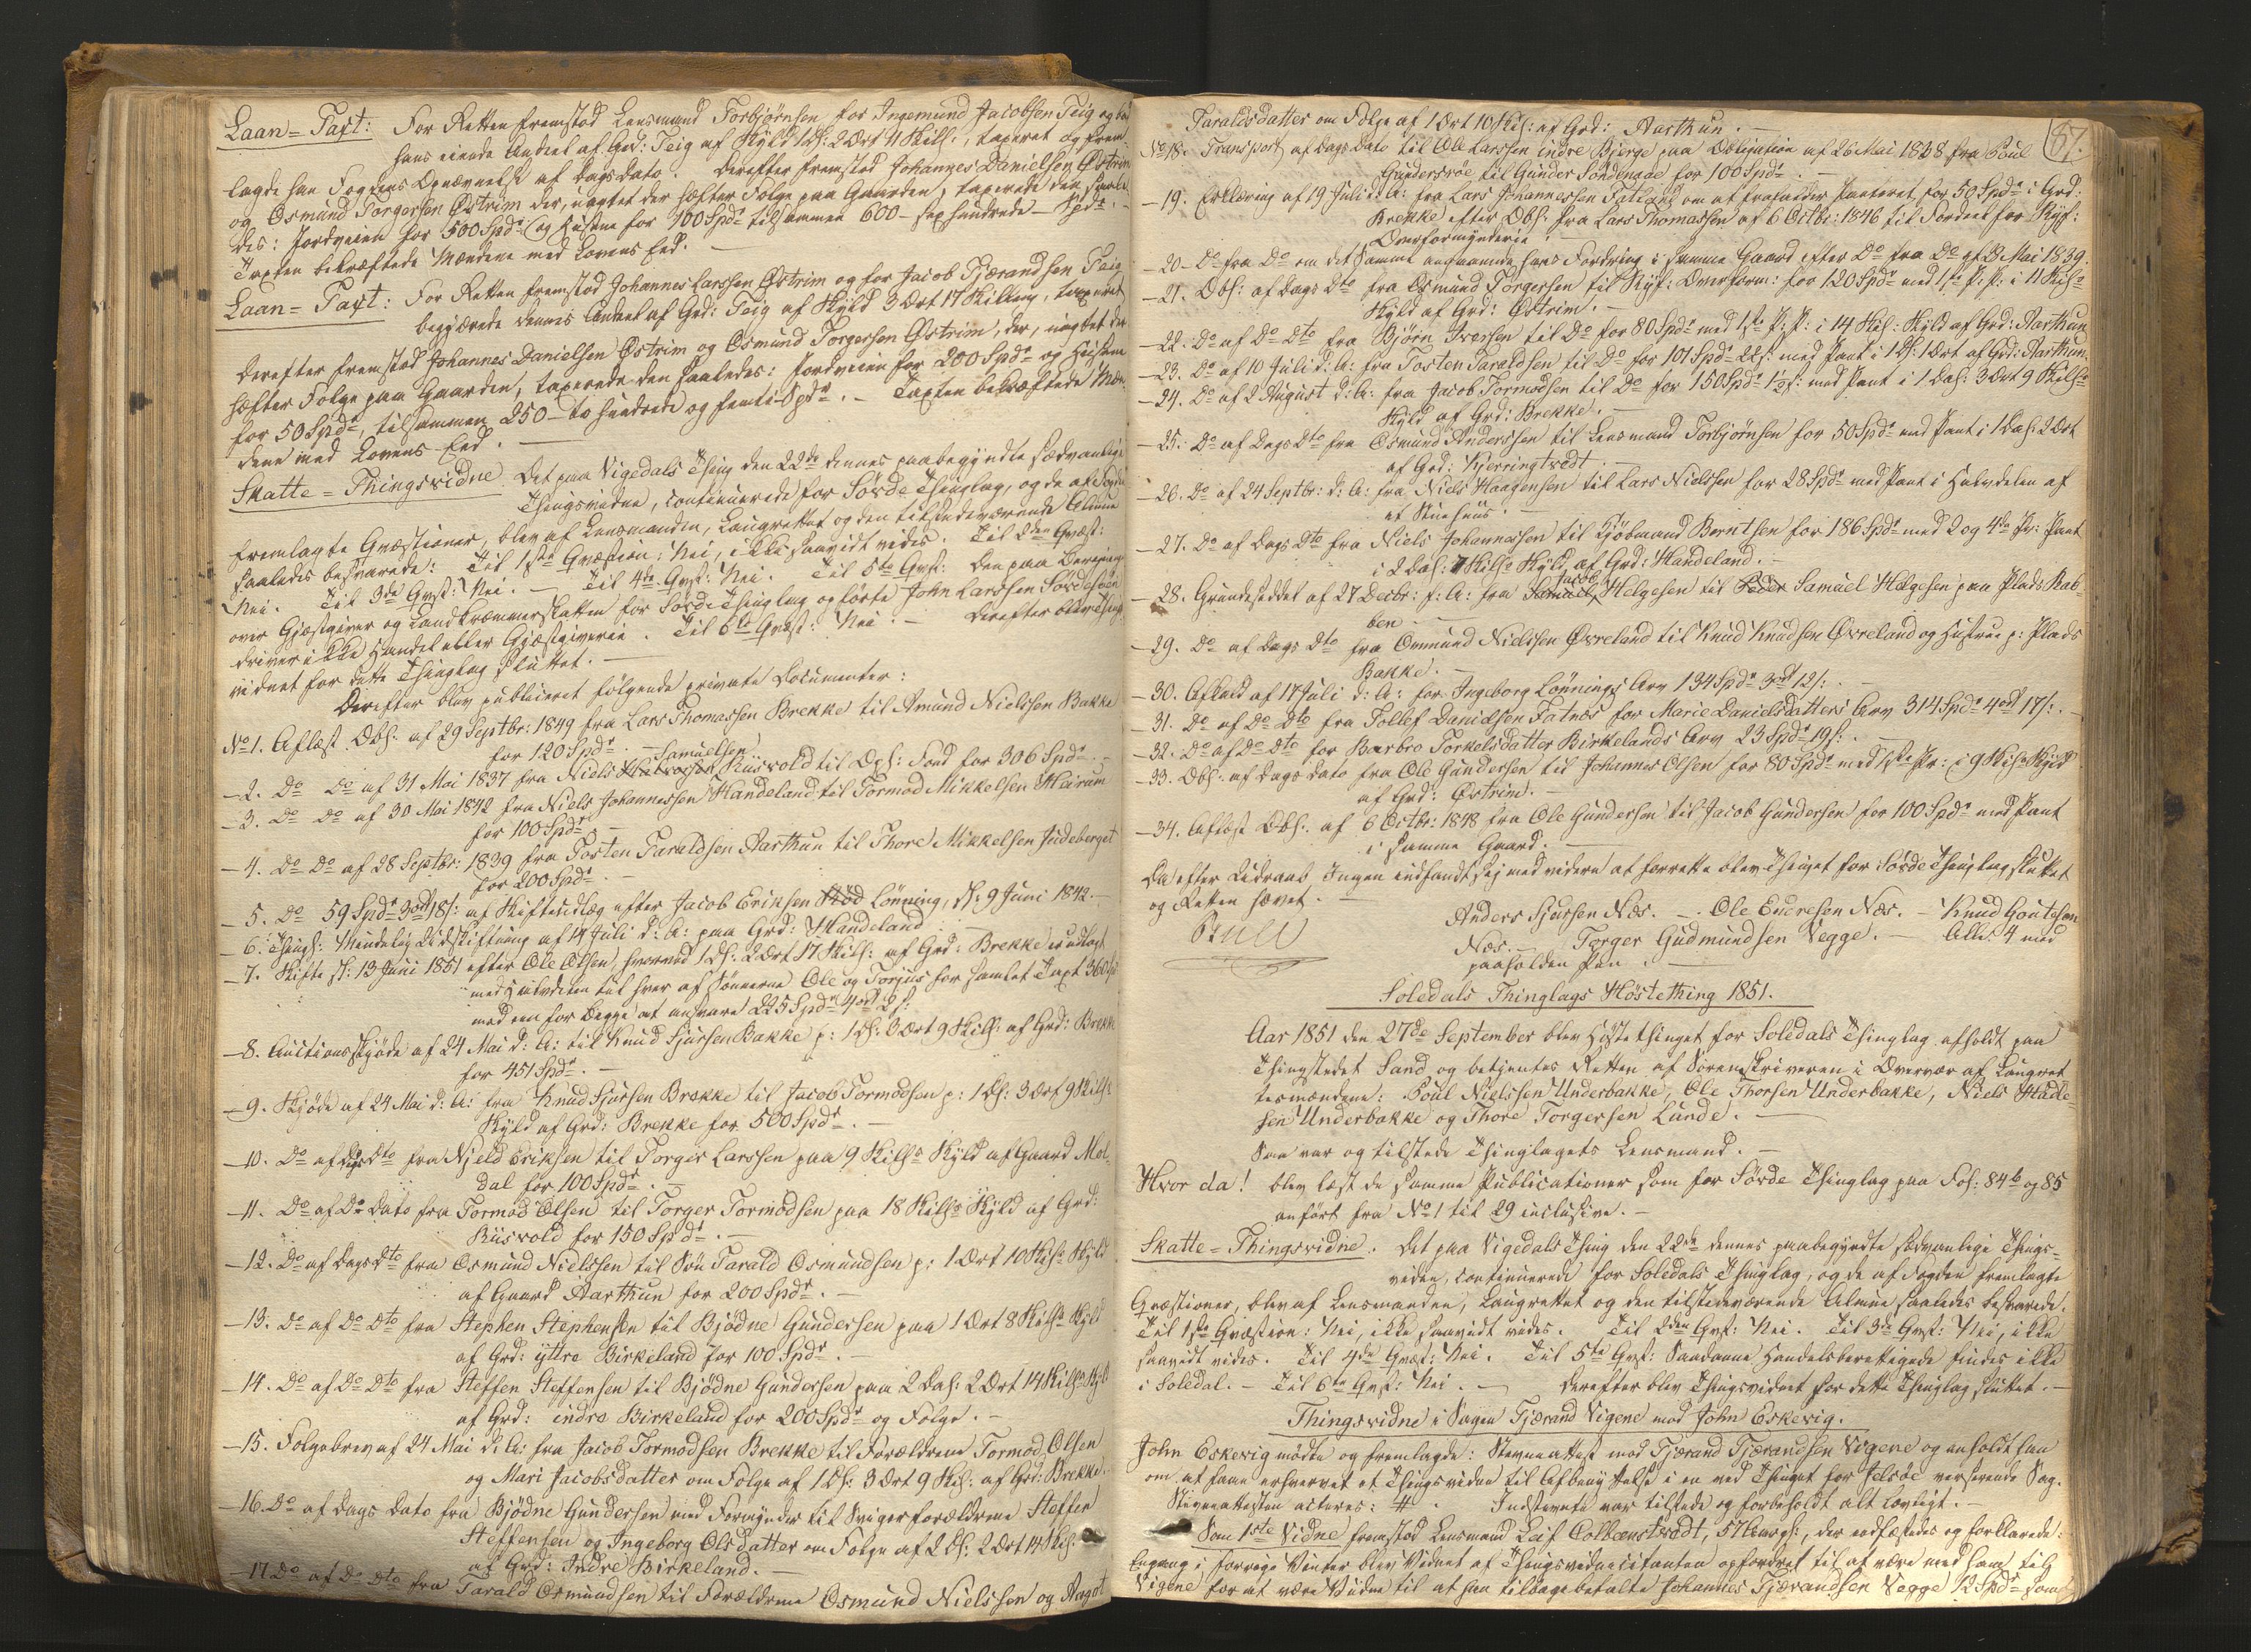 Laan=Taxt: For Retten fremstod Lensmand Torbjørnsen for Ingemund Jacobsen Teig og
hans eiende Andeel af Grd: Teig af Skyld 1 D: 2 Ort 11 Skill:, taxeret og frem-
lagde han Fogdens Opnævnelse af Dagsdato. Derefter fremstod Johannes Danielsen Østrim
og Osmund Torgersen Østrim der, uagtet der hæfter Folge paa Gaarden, taxerede den saale-
des: Jordveien for 500 Spdr og Husene for 100 Spdr tilsammen 600 – sex hundrede – Spdr. –
Taxten bekræftede Mændene med Lovens Eed. –
Laan=Taxt: For Retten fremstod Johannes Larssen Østrim og for Jacob Tjærandsen Teig
begjærede dennes Andeel af Grd: Teig af Skyld 3 Ort 17 Skilling, taxeret
Derefter fremstod Johannes Danielsen Østrim og Osmund Torgersen Østrim, der, uagtet der
hæfter Folge paa Gaarden, taxerede den saaledes: Jordveien for 200 Spdr og Husene
for 50 Spdr, tilsammen 250 – to hundrede og femti Spdr. – Taxten bekræftede Mæn-
dene med Lovens Eed. –
Skatte=Thingsvidne Det paa Vigedals Thing den 22de dennes paabegyndte sædvanlige
Thingsvidne, continuerede for Søvde Thinglag, og de af Fogden
fremlagte Qvæstioner, blev af Lensmanden, Laugrettet og den tilstedeværende Almue
saaledes besvarede: Til 1ste Qvæstion: Nei, ikke saavidt vides. Til 2den Qvæst:
Nei. Til 3die Qvst: Nei. – Til 4de Qvst: Nei. Til 5te Qvst: Den paa
over Gjæstgiver og Landkræmmerskatten for Søvde Thinglag opførte John Larssen Søvdesøen
driver ikke Handel eller Gjæstgiverie. Til 6te Qvæst: Nei: – Derefter blev Things-
vidnet for dette Thinglag sluttet. –
Derefter blev publiceret følgende private Documenter:
No 1. Aflæst Obl: af 29 Septbr: 1849 fra Lars Thomassen Brekke til Amund Nielssen Bakke
for 120 Spdr. –
– 2. Do Do af 31 Mai 1837 fra Niels Samuelsen Riisvold til Opl: Fond for 306 Spdr. –
– 3. Do Do af 30 Mai 1842 fra Niels Johannessen Handeland til Tormod Mikkelsen Heirum
for 100 Spdr –
– 4. Do Do af 28 Septbr: 1839 fra Tosten Taraldsen Aarthun til Thore Mikkelsen Indeberget
for 200 Spdr. –
– 5. Do 59 Spdr 3 ort 18 s: af Skifteudlæg efter Jacob Eriksen Lønning, sl: 9 Juni 1842. –
– 6. Thingl: Mindelig Udskiftning af 14 Juli d: A: paa Grd: Handeland
– 7. Skifte sl: 13 Juni 1851 efter Ole Olsen, hvorved 1 D: 2 Ort 17 Skill: af Grd: Brekke er udlagt
med Halvdelen til hver af Sønnerne Ole og Torjus for samlet Taxt 360 Spd
med een for Begge at ansvare 225 Spdr 4 ort 2 s:
– 8. Auctionsskjøde af 24 Mai d: A: til Knud Sjursen Bakke p: 1 D: 3 Ort 9 Skill: af Grd: Brekke
for 451 Spdr. –
– 9. Skjøde af 24 Mai d: A: fra Knud Sjursen Brekke til Jacob Tormodsen p: 1 D: 3 Ort 9 Skill:
Skyld af Grd: Brekke for 500 Spdr. –
– 10. Do af Dags Dto fra Njeld Eriksen til Torger Larssen paa 9 Skills Skyld af Gaard Mol-
dal for 100 Spdr. –
– 11. Do af Do Dato fra Tormod Olsen til Torger Tormodsen paa 18 Skills Skyld af Grd:
Riisvold for 150 Spdr. –
– 12. Do af Dags Dto fra Osmund Nielssen til Søn Tarald Osmundsen p: 1 Ort 10 Sks Skyld
af Gaard Aarthun for 200 Spdr. –
– 13. Do af Do Dto fra Stephen Stephensen til Bjødne Gundersen paa 1 Ort 8 Skills Skyld
af Grd: yttre Birkeland for 100 Spdr. –
– 14. Do af Do Dto fra Steffen Steffensen til Bjødne Gundersen paa 2 Dal: 2 Ort 14 Skills Skyld
af Grd: indre Birkeland for 200 Spdr og Folge. –
– 15. Folgebrev af 24 Mai d: A: fra Jacob Tormodsen Brekke til Forældrene Tormod Olsen
og Mari Jacobsdatter om Folge af 1 D: 3 Ort 9 Sk: af Grd: Brekke.
– 16. Do af Dags Dato fra Bjødne Gundersen med Formynder til Svigerforældrene Steffen
Steffensen og Ingeborg Olsdatter om Folge af 2 D: 2 Ort 14 Sk:
af Grd: Indre Birkeland. –
– 17 Do af Do Dto fra Tarald Osmundsen til Forældrene Osmund Nielssen og Aagot
87.
Taraldsdatter om Folge af 1 Ort 10 Sk: af Grd: Aarthun. –
No 18. Transport af Dags Dato til Ole Larssen indre Bjerge paa Obligation af 26 Mai 1838 fra Poul
Gundersrøe til Gunder Søndenaae for 100 Spdr. –
– 19. Erklæring af 19 Juli d: A: fra Lars Johannessen Fatland om at frafalder Panteret for 50 Spdr i Grd:
Brekke efter Obl: fra Lars Thomassen af 6 Octbr: 1846 til Fordeel for Ryf:
Overformynderie: –
– 20 – Do fra Do om det Samme angaaende hans Fordring i samme Gaard efter Do fra Do af 28 Mai 1839.
– 21. Obl: af Dags Dto fra Osmund Torgersen til Ryf: Overform: for 120 Spdr med 1ste P: P: i 11 Sks
Skyld af Grd: Østrim. –
– 22. Do af Do Dto fra Bjørn Iversen til Do for 80 Spdr med 1ste P: P: i 14 Sk: Skyld af Grd: Aarthun
– 23. Do af 10 Juli d: A: fra Tosten Taraldsen til Do for 101 Spdr 22 s: med Pant i 1 D: 1 Ort af Grd: Aarthun.
– 24. Do af 2 August d: A: fra Jacob Tormodsen til Do for 150 Spdr 1½ s: med Pant i 1 Dal: 3 Ort 9 Skills
Skyld af Grd: Brekke. –
– 25. Do af Dags Dto fra Osmund Andersen til Lensmand Torbjørnsen for 50 Spdr med Pant i 1 Dal: 2 Ort
af Grd: Kjerringtvedt. –
– 26. Do af 24 Septbr: d: A: fra Niels Haagensen til Lars Nielssen for 28 Spdr med Pant i Halvdelen af
et Stuehuus. –
– 27. Do af Dags Dto fra Niels Johannessen til Kjöbmand Berntsen for 186 Spdr med 2 og 4de Pr: Pant
i 2 Dal: 7 Skills Skyld af Grd: Handeland. –
– 28. Grundeseddel af 27 Decbr: f: A: fra Jacob Helgesen til Samuel Helgesen paa Plads Rab-
ben. –
– 29. Do af Dags Dto fra Ommund Nielssen Øvreland til Knud Knudsen Øvreland og Hustrue p: Plads
Bakke. –
– 30. Afkald af 17 Juli d: A: for Ingeborg Lønnings Arv 134 Spdr 3 ort 12 s: –
– 31. Do af Do Dto fra Tollef Danielsen Fatnes for Marie Danielsdatters Arv 314 Spdr 4 ort 17 s: –
– 32. Do af Do Dto for Barbro Torkelsdatter Birkelands Arv 23 Spdr 19 s: –
– 33. Obl: af Dags Dato fra Ole Gundersen til Johannes Olsen for 80 Spdr med 1ste Pr: i 9 Sks Skyld
af Grd: Østrim. –
– 34. Aflæst Obl: af 6 Octbr: 1848 fra Ole Gundersen til Jacob Gundersen for 100 Spdr med Pant
i samme Gaard. –
Da efter Udraab Ingen indfandt sig med videre at forrette blev Thinget for Søvde Thinglag sluttet
og Retten hævet. –
Anders Sjursen Næs. – Ole Endresen Næs. – Knud Goutesen
Næs. – Torger Gudmundsen Vegge. – Alle 4 med
paaholden Pen. –
Soledals Thinglags Høstething 1851.
Aar 1851 den 27de September blev Høstethinget for Soledals Thinglag afholdt paa
Thingstedet Sand og betjentes Retten af Sorenskriveren i Overvær af Laugret
tesmændene: Poul Nielssen Underbakke, Ole Thorsen Underbakke, Niels Hadle-
sen Underbakke og Thore Torgersen Lunde. –
Saa var og tilstede Thinglagets Lensmand. –
Hvor da! blev læst de samme Publicationer som for Søvde Thinglag paa Fol: 84b og 85
anført fra No 1 til 29 inclusive. –
Skatte=Thingsvidne. Det paa Vigedals Thing den 22de dennes paabegyndte sædvanlige Things-
vidne, continuerede for Soledals Thinglag, og de af Fogden fremlagte
Qvæstioner, blev af Lensmanden, Laugrettet og den tilstedeværende Almue saaledes besvarede.
Til 1ste Qvæstion: Nei, ikke saavidt vides. Til 2den Qvst: Nei. Til 3de Qvst: Nei, ikke
saavidt vides. Til 4de Qvæst: Nei. Til 5te Qvst: Saadanne Handelsberettigede findes ikke
i Soledal. – Til 6te Qvst: Nei. – Derefter blev Thingsvidnet for dette Thinglag sluttet. –
Thingsvidne i Sagen Tjærand Vigene mod John Eskevig.
John Eskevig mødte og fremlagde: Stevneattest mod Tjærand Tjærandsen Vigene og anholdt han
om at faae erhvervet et Thingsvidne til Afbenyttelse i en ved Thinget for Jelsøe verserende Sag.
Stevneattesten acteres: #. Indstevnte var tilstede og forbeholdt alt lovligt. –
Som 1ste Vidne fremstod Lensmand Leif Colbenstvedt, 57 Aar gl:, der eedfæstedes og forklarede:
Engang i forrige Vinter blev Vidnet af Thingsvidnecitanten opfordret til at være med ham til
Vigene for at være Vidne til at han tilbagebetalte Johannes Tjærandsen Vegge 12 Spdr som